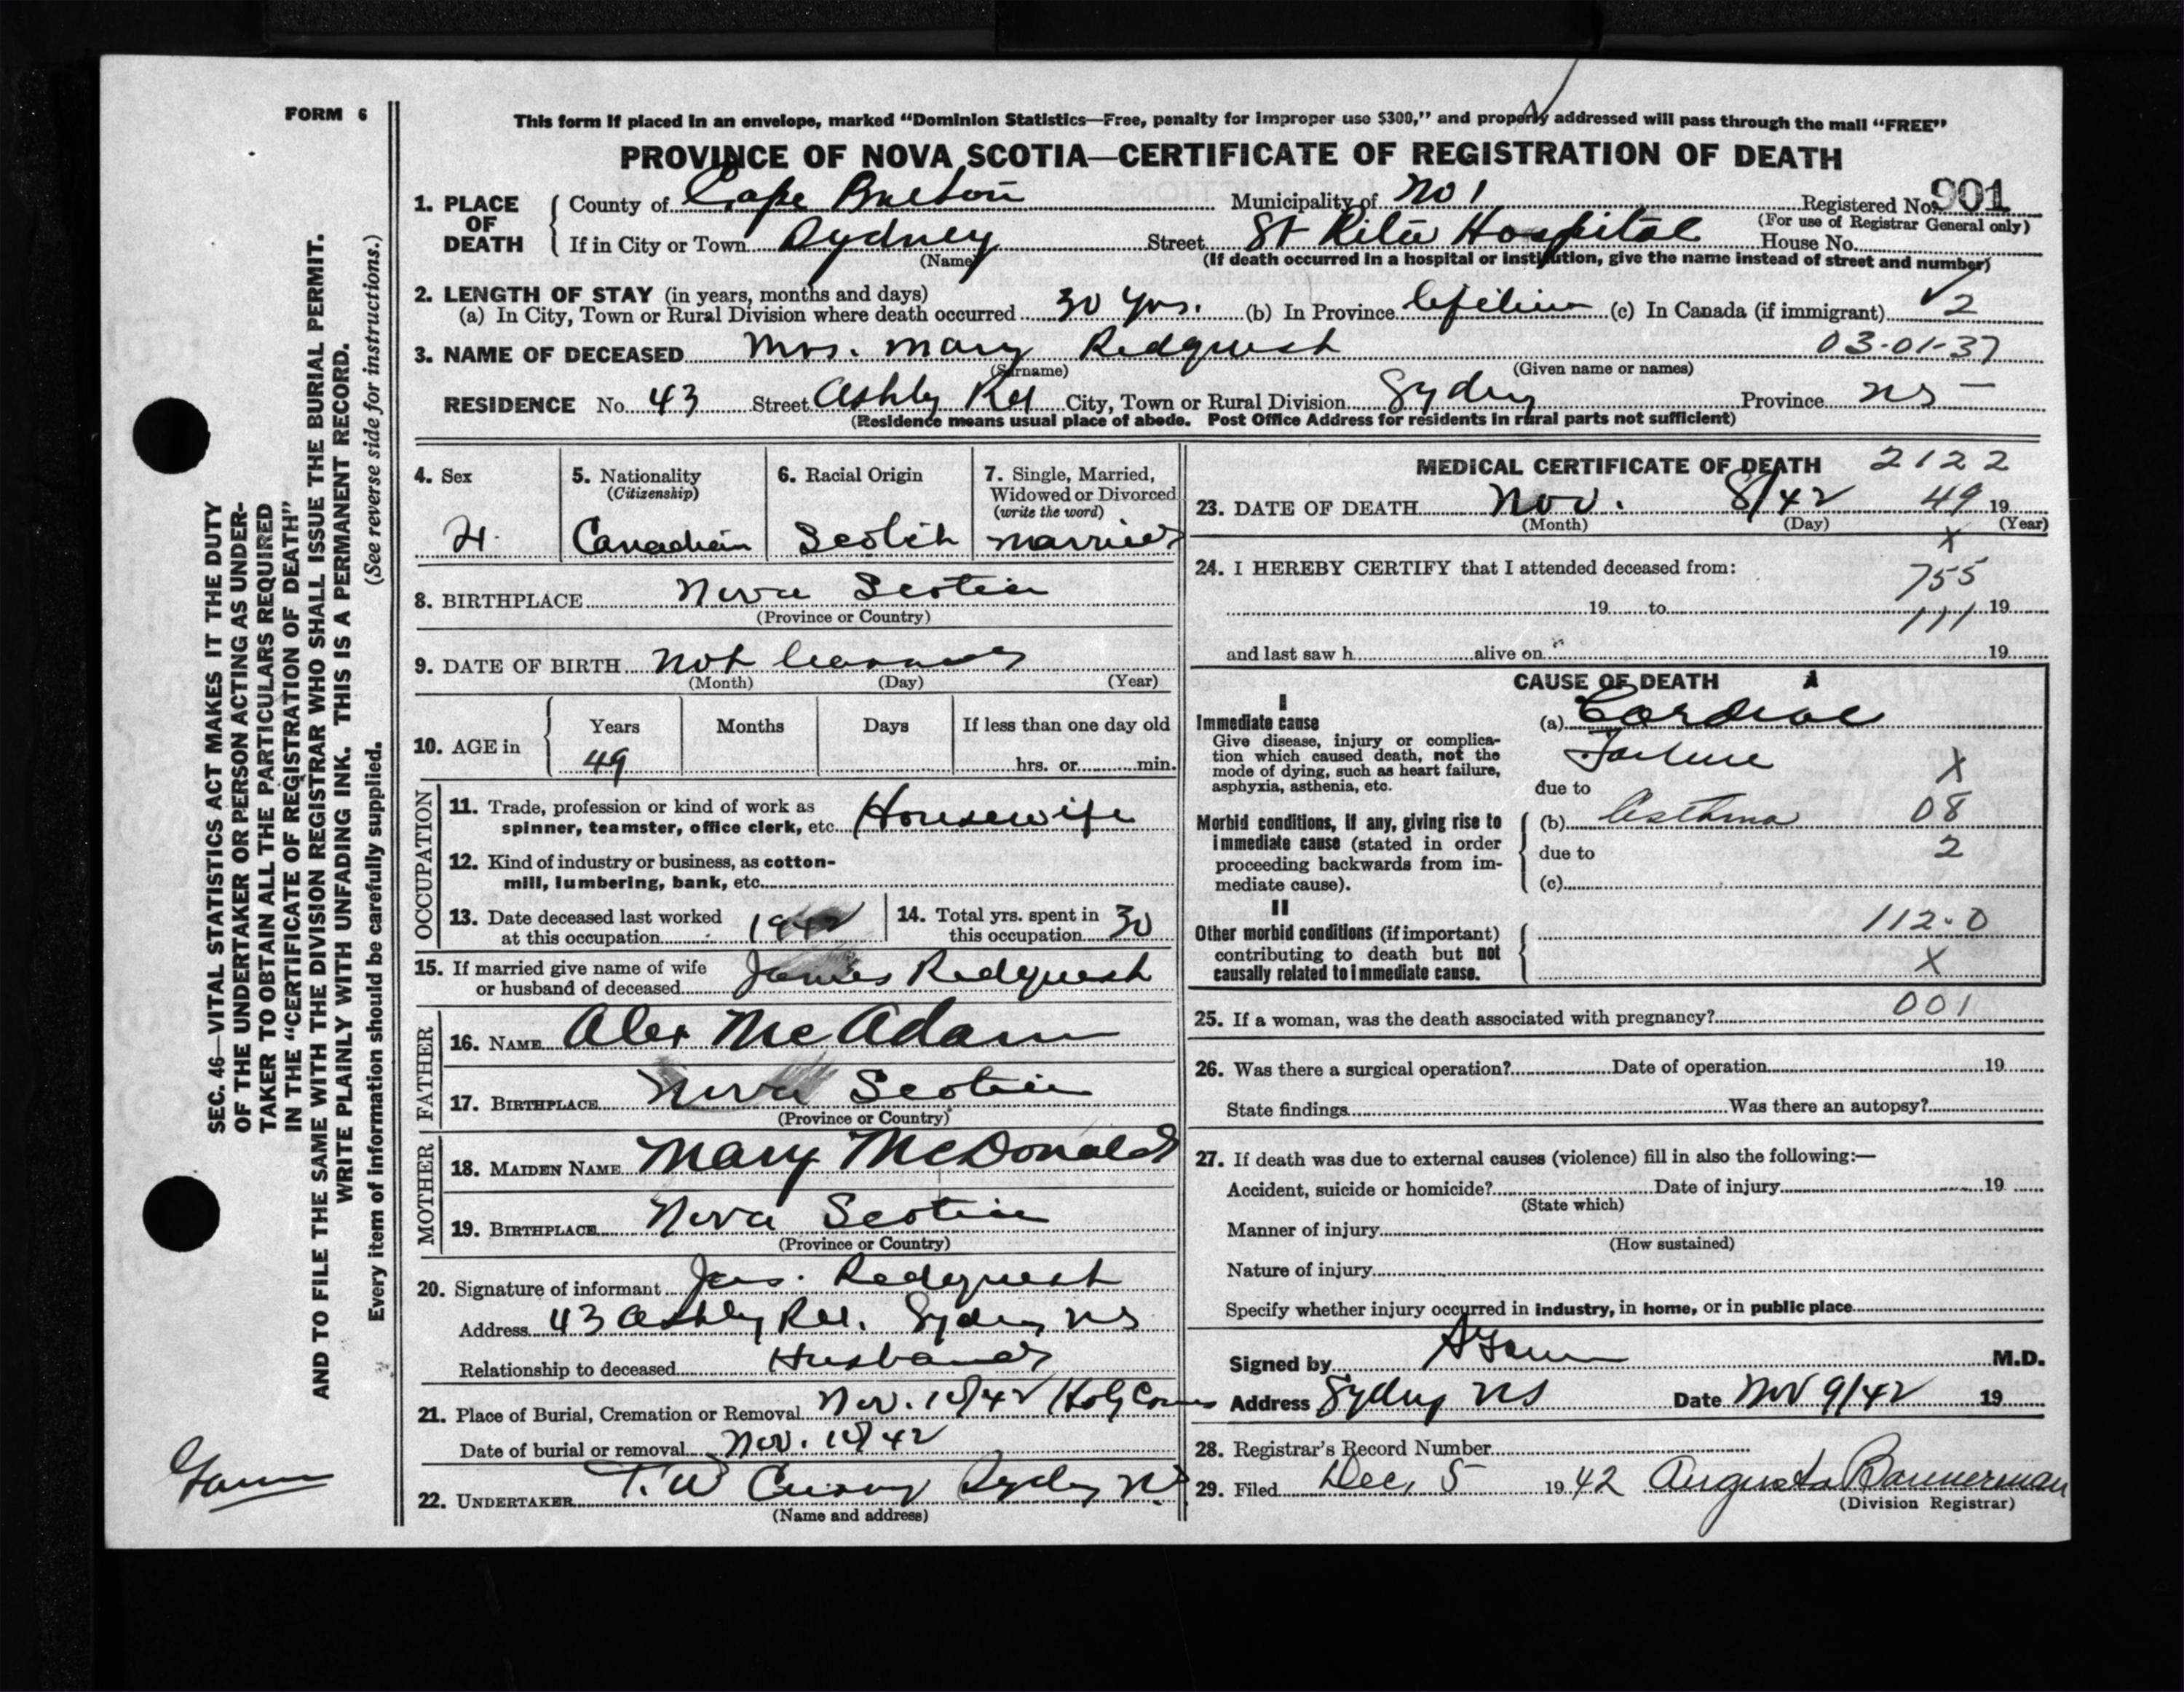 FORM 6
This form if placed in an envelope, marked "Dominion Statistics—Free, penalty for improper use $300," and properly addressed will pass through the mail "FREE"
PROVINCE OF NOVA SCOTIA—CERTIFICATE OF REGISTRATION OF DEATH
1. PLACE OF DEATH County of Cape Breton Municipality of No 1 Registered No. 901
(For use of Registrar General only)
If in City or Town Sydney Street St Rita Hospital House No.
(Name) (If death occurred in a hospital or institution, give the name instead of street and number)
2. LENGTH OF STAY (in years, months and days)
(a) In City, Town or Rural Division where death occurred 30 yrs. (b) In Province Lifetime (c) In Canada (if immigrant) 2
3. NAME OF DECEASED Mrs. Mary Redquest 03-01-37
(Surname) (Given name or names)
RESIDENCE No. 43 Street Ashby Rd City, Town or Rural Division Sydney Province NS
(Residence means usual place of abode. Post Office Address for residents in rural parts not sufficient)
4. Sex 5. Nationality 6. Racial Origin 7. Single, Married,
(Citizenship) Widowed or Divorced
(write the word)
Canadian Scotch Married
8. BIRTHPLACE Nova Scotia
(Province or Country)
9. DATE OF BIRTH Not
(Month) (Day) (Year)
10. AGE in Years Months Days If less than one day old
49 hrs. or min.
OCCUPATION
11. Trade, profession or kind of work as
spinner, teamster, office clerk, etc. Housewife
12. Kind of industry or business, as cotton-
mill, lumbering, bank, etc.
13. Date deceased last worked 14. Total yrs. spent in
at this occupation 1942 this occupation 30
15. If married give name of wife
or husband of deceased James Redquest
FATHER
16. NAME Alex McAdam
17. BIRTHPLACE Nova Scotia
(Province or Country)
MOTHER
18. MAIDEN NAME Mary McDonald
19. BIRTHPLACE Nova Scotia
(Province or Country)
20. Signature of informant Jas. Redquest
Address 43 Ashby Rd. Sydney NS
Relationship to deceased Husband
21. Place of Burial, Cremation or Removal Nov. 10/42 Holy Cross
Date of burial or removal Nov. 10/42
22. UNDERTAKER T.W Curry Sydney NS
(Name and address)
MEDICAL CERTIFICATE OF DEATH 2122
23. DATE OF DEATH Nov. 8/42 49 19
(Month) (Day) (Year)
X
24. I HEREBY CERTIFY that I attended deceased from: 755
19 to 111 19
and last saw h alive on 19
CAUSE OF DEATH
I
Immediate cause (a) Cardiac
Give disease, injury or complica-
tion which caused death, not the Failure
mode of dying, such as heart failure, X
asphyxia, asthenia, etc. due to
Morbid conditions, if any, giving rise to (b) Asthma 08
immediate cause (stated in order
proceeding backwards from im- due to 2
mediate cause). (c)
II
Other morbid conditions (if important) 112.0
contributing to death but not
causally related to immediate cause. X
25. If a woman, was the death associated with pregnancy? 001
26. Was there a surgical operation? Date of operation 19
State findings Was there an autopsy?
27. If death was due to external causes (violence) fill in also the following:—
Accident, suicide or homicide? Date of injury 19
(State which)
Manner of injury
(How sustained)
Nature of injury
Specify whether injury occurred in industry, in home, or in public place
Signed by M.D.
Address Sydney NS Date Nov 9/42 19
28. Registrar's Record Number
29. Filed Dec. 5 1942 Augusta Bannerman
(Division Registrar)
SEC. 46—VITAL STATISTICS ACT MAKES IT THE DUTY
OF THE UNDERTAKER OR PERSON ACTING AS UNDER-
TAKER TO OBTAIN ALL THE PARTICULARS REQUIRED
IN THE "CERTIFICATE OF REGISTRATION OF DEATH"
AND TO FILE THE SAME WITH THE DIVISION REGISTRAR WHO SHALL ISSUE THE BURIAL PERMIT.
WRITE PLAINLY WITH UNFADING INK. THIS IS A PERMANENT RECORD.
Every item of information should be carefully supplied. (See reverse side for instructions.)